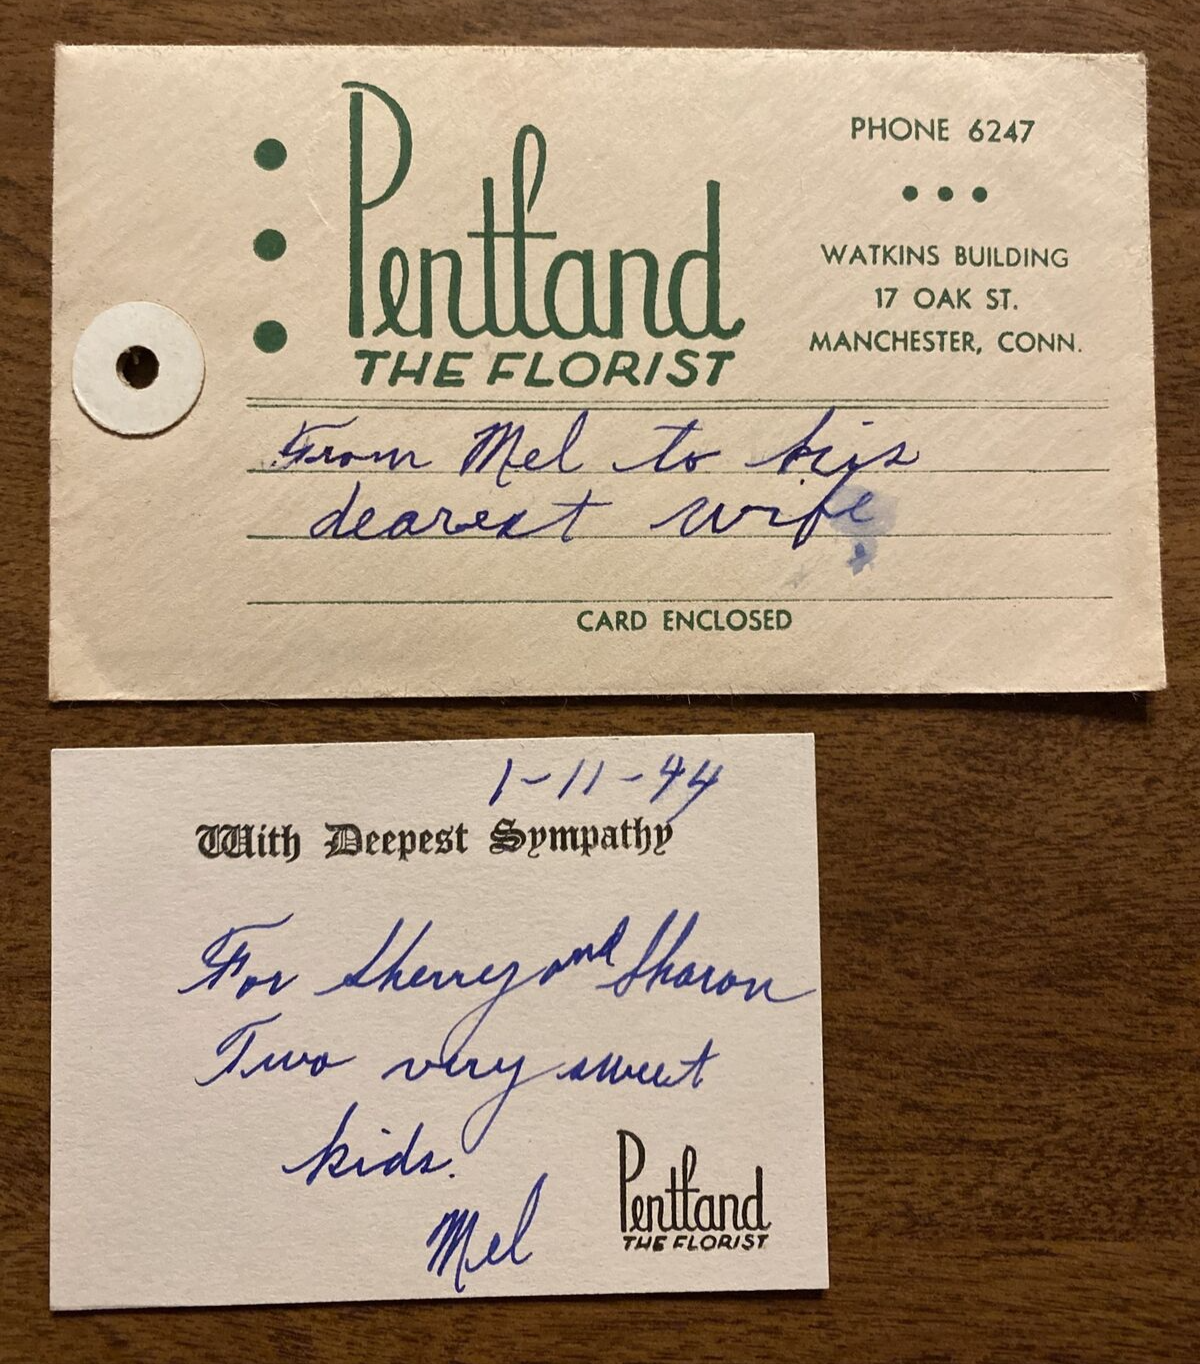 Pentland
THE FLORIST
PHONE 6247
WATKINS BUILDING
17 OAK ST.
MANCHESTER, CONN.
From Mel to his
dearest wife
CARD ENCLOSED
1-11-44
With Deepest Sympathy
For Sherrey and Sharon
Two very sweet
kids.
Mel
Pentland
THE FLORIST